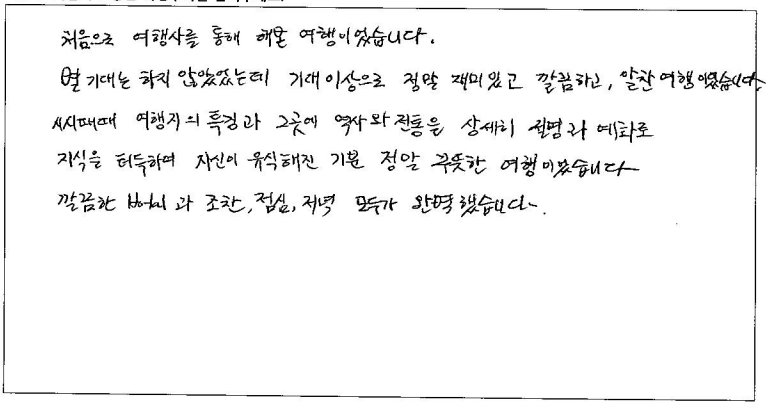 처음으로 여행사를 통해 해본 여행이었습니다.
별 기대는 하지 않았었는데 기대 이상으로 정말 재미있고 깔끔하고, 알찬 여행이었습니다.
시시때때 여행지의 특징과 그곳에 역사와 전통을 상세히 설명과 예화로
지식을 터득하며 자신이 유식해진 기분 정말 뿌듯한 여행이었습니다
깔끔한 Hotel과 조찬, 점심, 저녁 모두가 완벽했습니다.